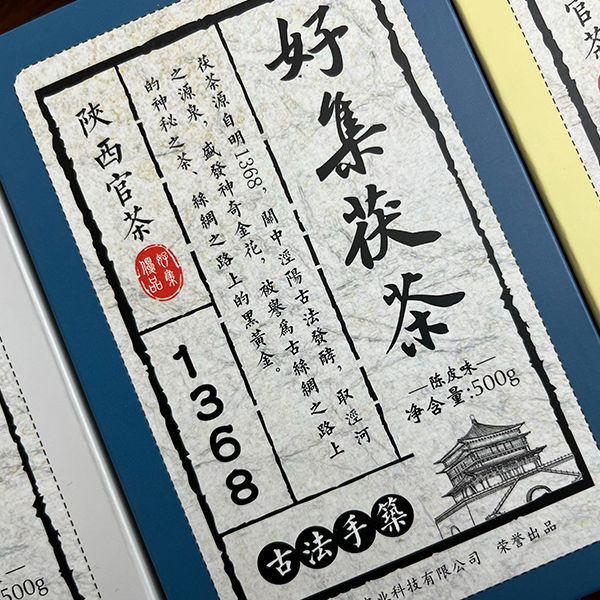 好集茯茶
—陈皮味—
净含量:500g
茯茶源自明1368，關中涇陽古法發酵，取涇河
之源泉，盛發神奇金花，被譽爲古絲綢之路上
的神秘之茶、絲綢之路上的黑黃金。
陝西官茶
好集
優品
1368
古法手築
业科技有限公司 荣誉出品
500g